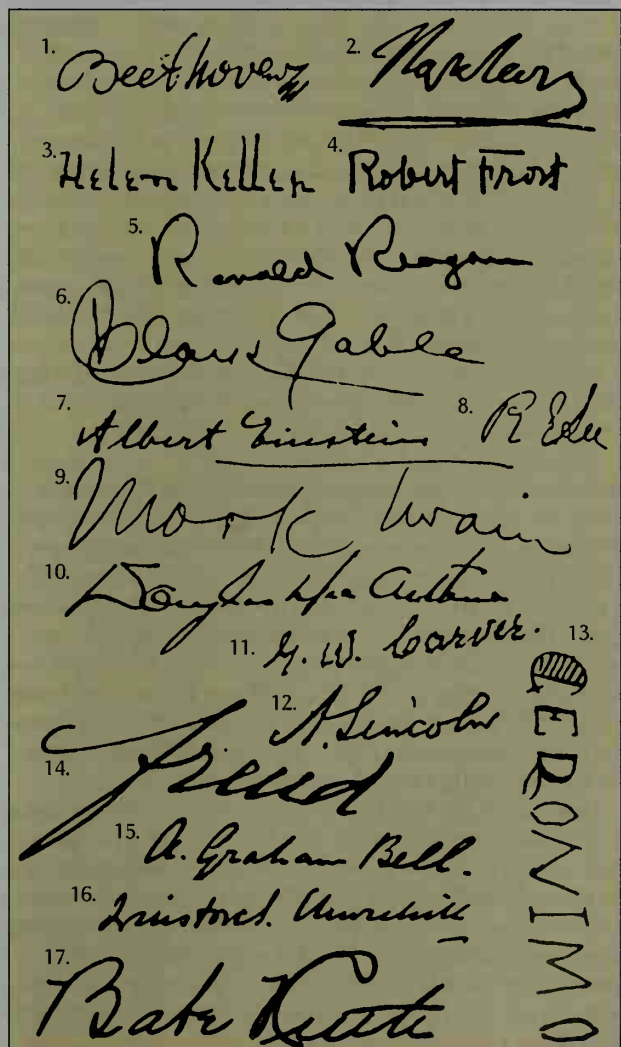 1. Beethoven 2. Napoleon
3. Helen Keller 4. Robert Frost
5. Ronald Reagan
6. Clark Gable
7. Albert Einstein 8. R E Lee
9. Mark Twain
10. Douglas MacArthur
11. G. W. Carver. 13. GERONIMO
12. A. Lincoln
14. Freud
15. A. Graham Bell.
16. Winston S. Churchill
17. Babe Ruth